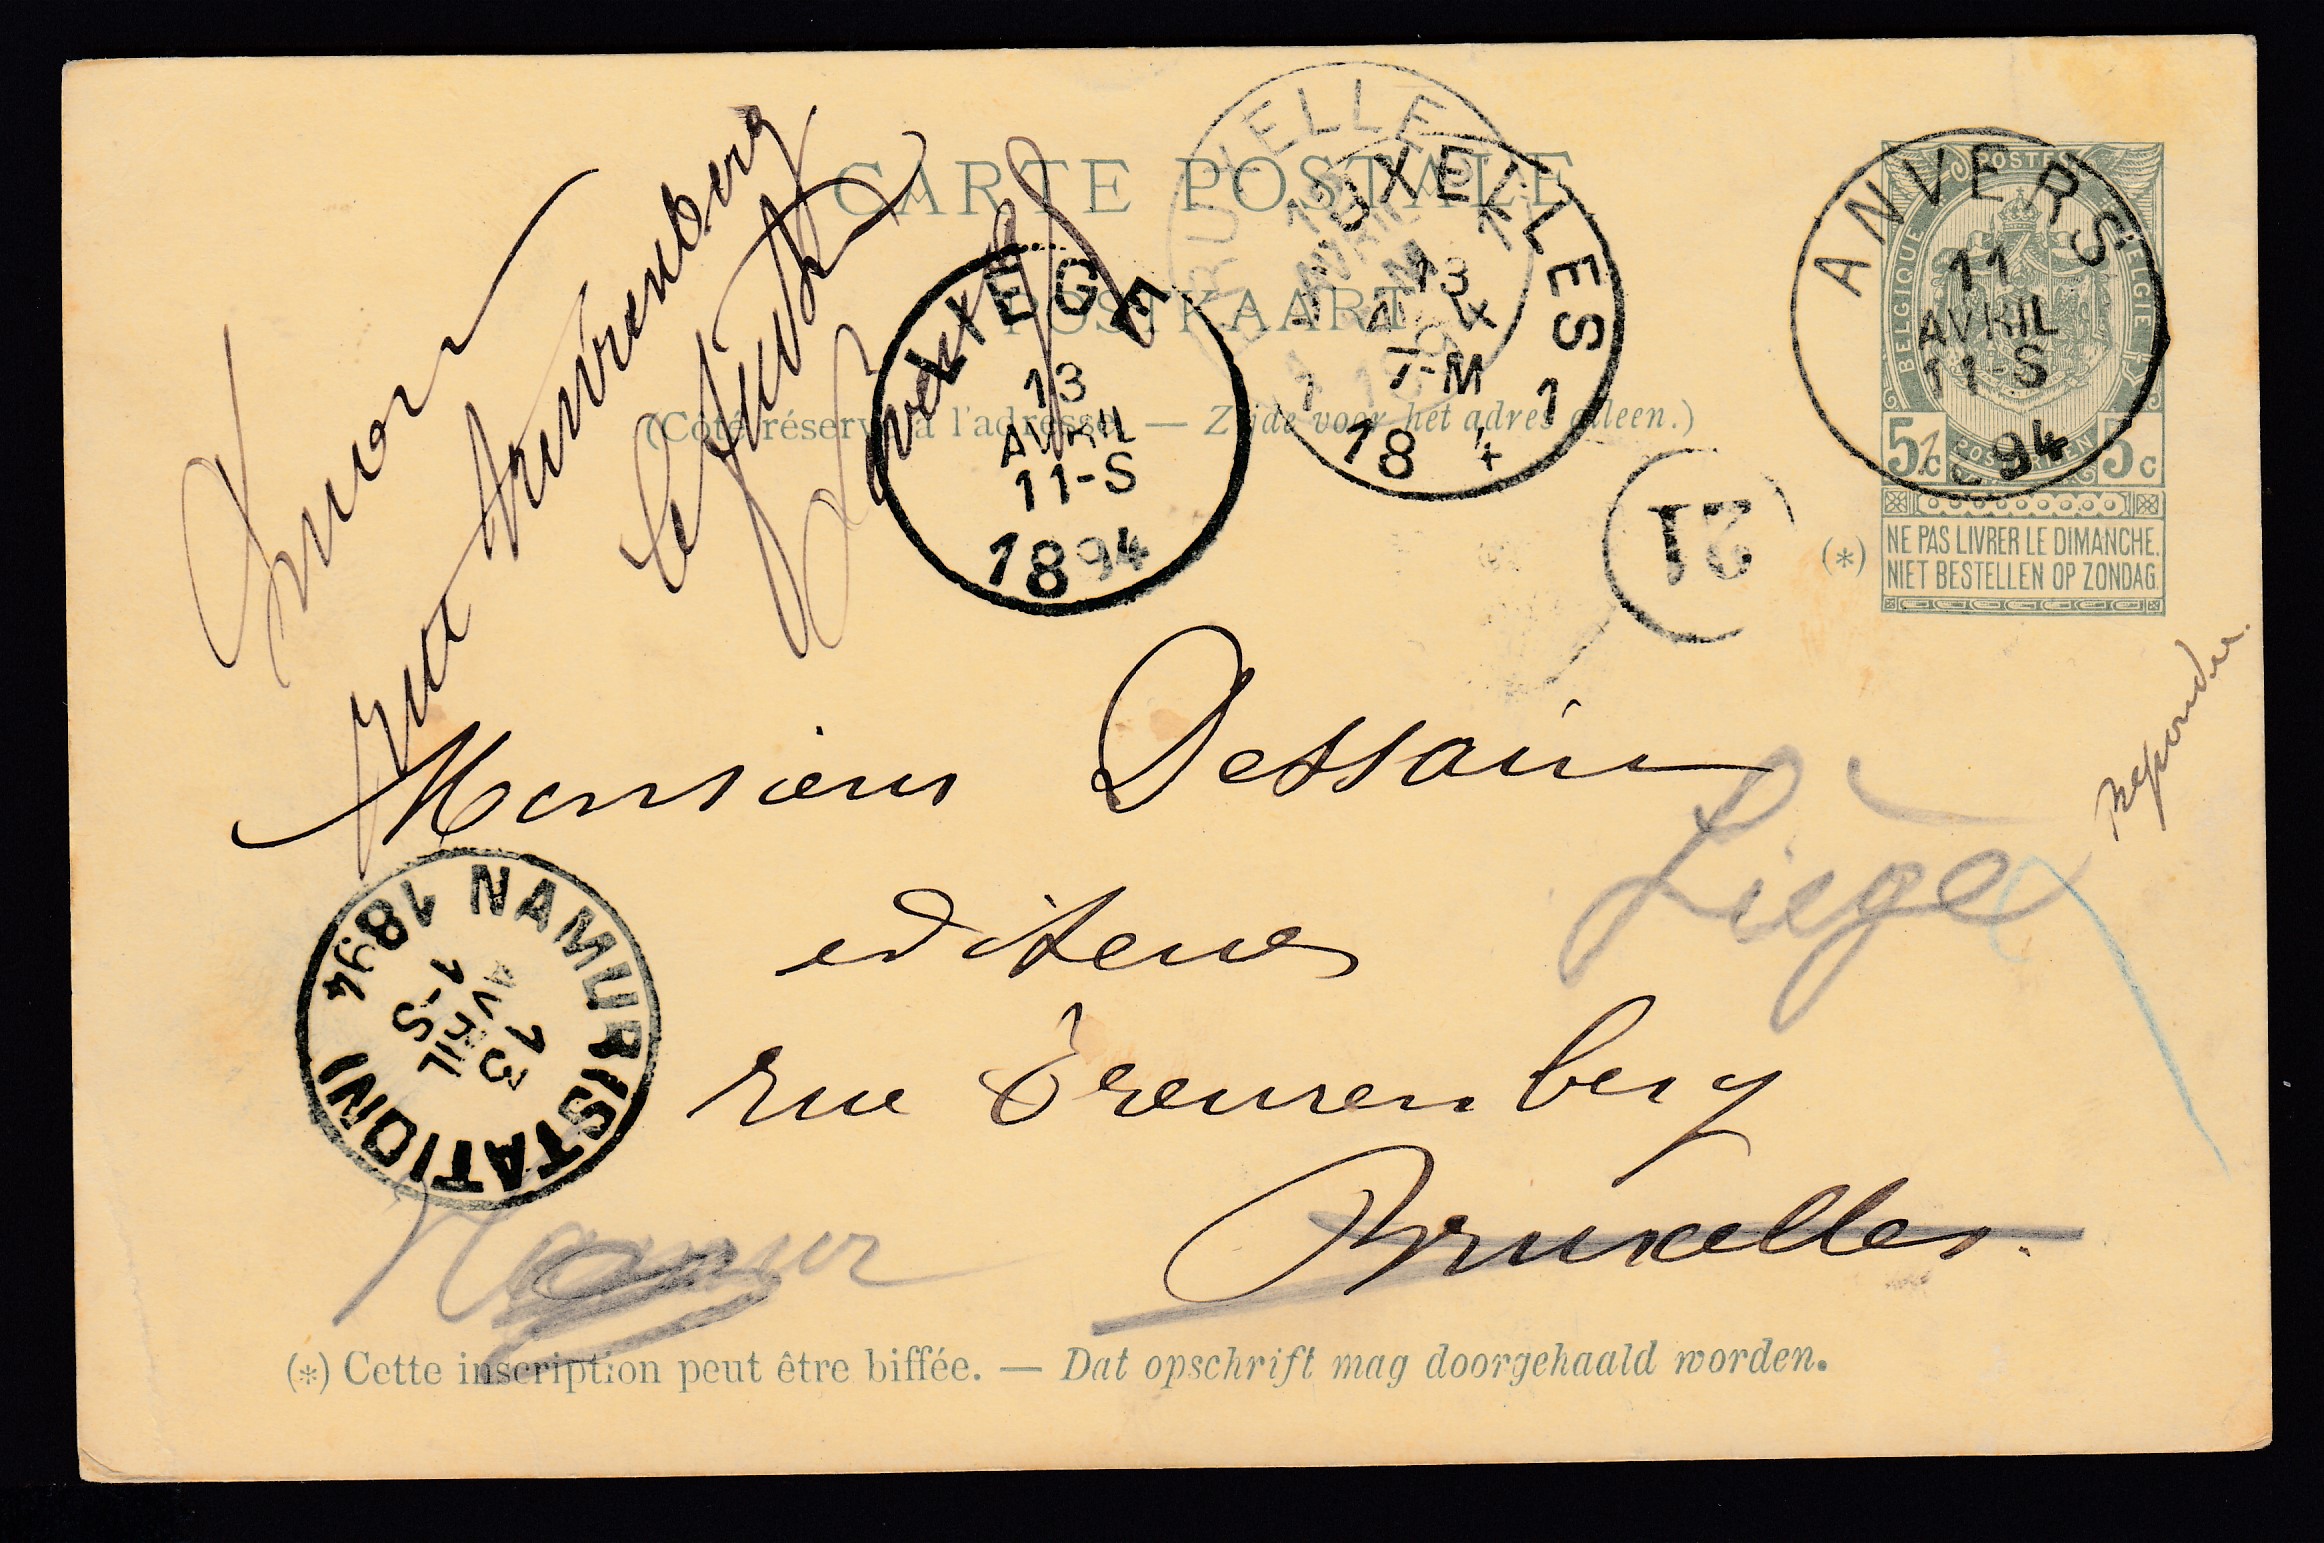 CARTE POSTALE
POSTKAART
(Côté réservé à l'adresse. — Zijde voor het adres alleen.)
POSTES
BELGIQUE
BELGIE
POSTERIJEN
5 c
5 c
NE PAS LIVRER LE DIMANCHE.
NIET BESTELLEN OP ZONDAG.
(*)
ANVERS
11
AVRIL
11-S
94
BRUXELLES 1
13
7-M
18 4
BRUXELLES
AVRIL
LIEGE
13
AVRIL
11-S
1894
21
Inconnu
rue Treurenberg
le facteur
Monsieur Dessain
editeur
rue Treurenberg
Bruxelles.
Liège
Repondu.
NAMUR (STATION)
13
AVRIL
1-S
1894
Namur
(*) Cette inscription peut être biffée. — Dat opschrift mag doorgehaald worden.